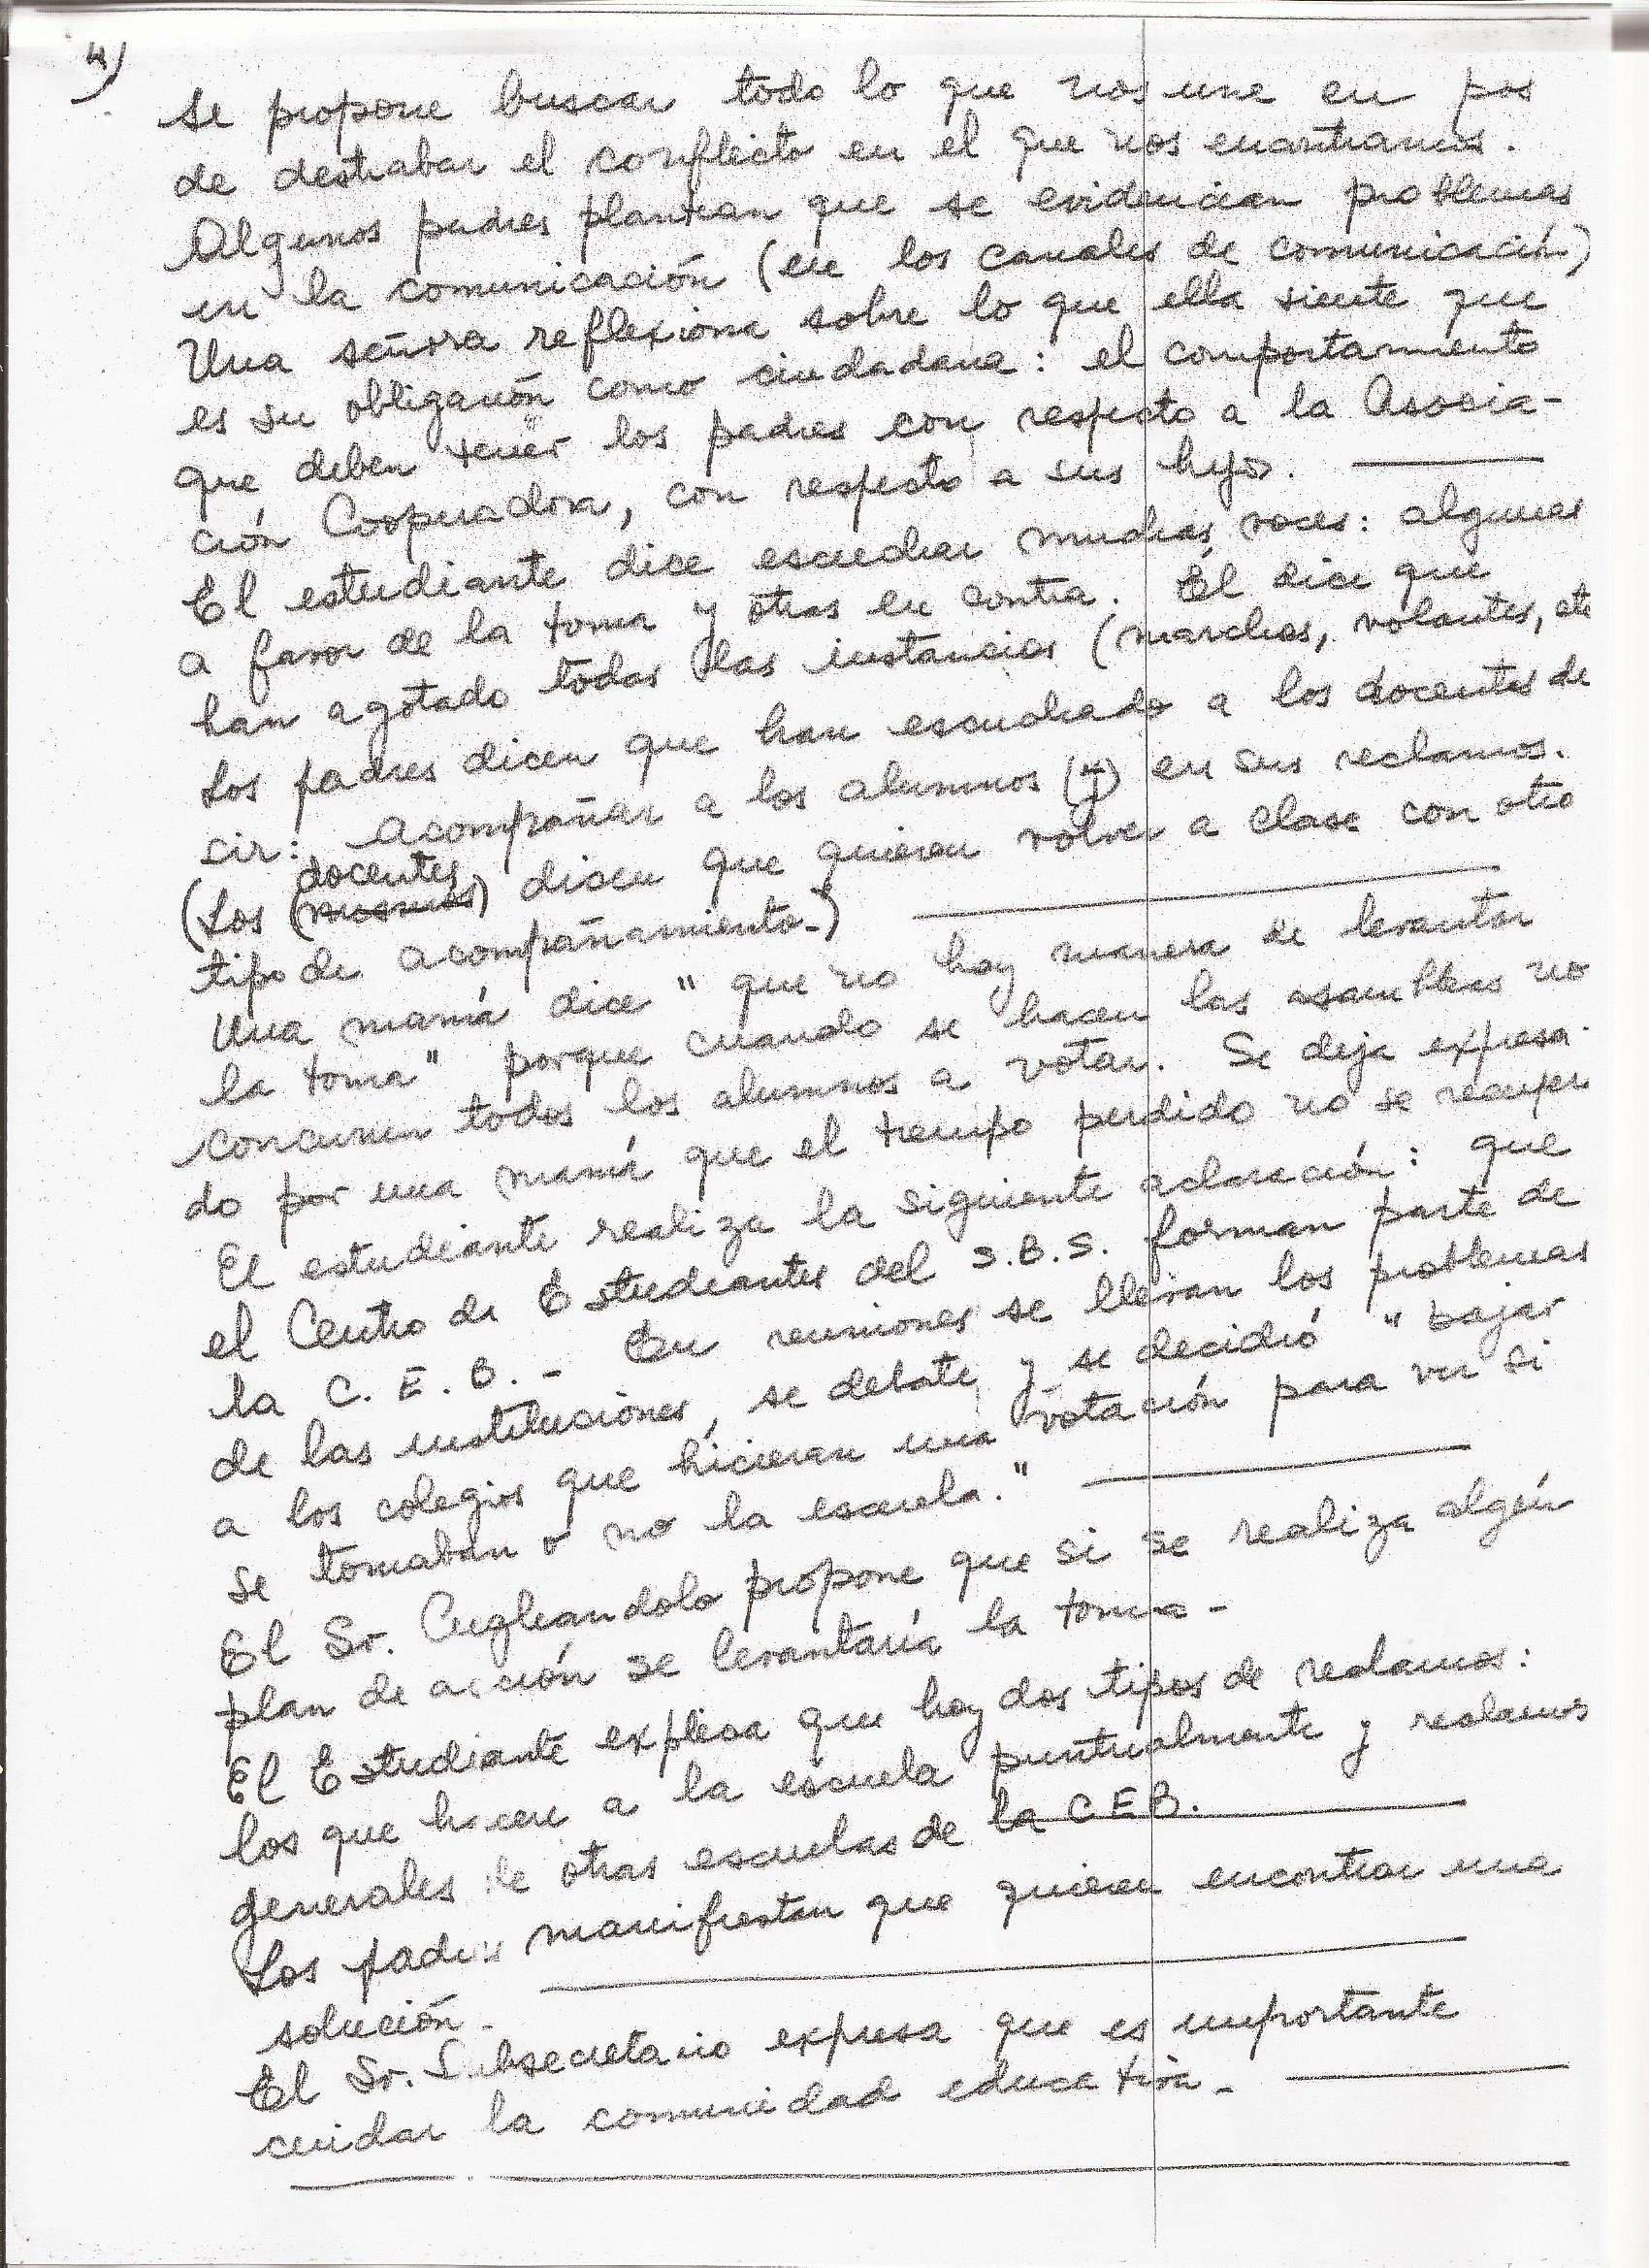 4)
se propone buscar todo lo que nos une en pos
de destrabar el conflicto en el que nos encontramos.
Algunos padres plantean que se evidencian problemas
en la comunicación (en los canales de comunicación)
Una señora reflexiona sobre lo que ella siente que
es su obligación como ciudadana: el comportamiento
que deben tener los padres con respecto a la Asocia-
ción Cooperadora, con respecto a sus hijos.
El estudiante dice escuchar muchas voces: algunas
a favor de la toma y otras en contra. Él dice que
han agotado todas las instancias (marchas, volantes, etc
Los padres dicen que han escuchado a los docentes de
cir: acompañar a los alumnos (4) en sus reclamos.
docentes
(Los (mismos) dicen que quieren volver a clase con otro
tipo de acompañamiento-)
Una mamá dice "que no hay manera de levantar
la toma" porque cuando se hacen las asambleas no
concurren todos los alumnos a votar. Se deja expresa-
do por una mamá que el tiempo perdido no se recuper
El estudiante realiza la siguiente aclaración: que
el Centro de Estudiantes del S.B.S. forman parte de
la C.E.B.- En reuniones se llevan los problemas
de las instituciones, se debate y se decidió "bajar
a los colegios que hicieran una votación para ver si
se tomaban o no la escuela."
El Sr. Cugliandolo propone que si se realiza algún
plan de acción se levantaría la toma-
El Estudiante explica que hay dos tipos de reclamos:
los que hacen a la escuela puntualmente y reclamos
generales de otras escuelas de la CEB.
Los padres manifiestan que quieren encontrar una
solución-
El Sr. Subsecretario expresa que es importante
cuidar la comunidad educativa-